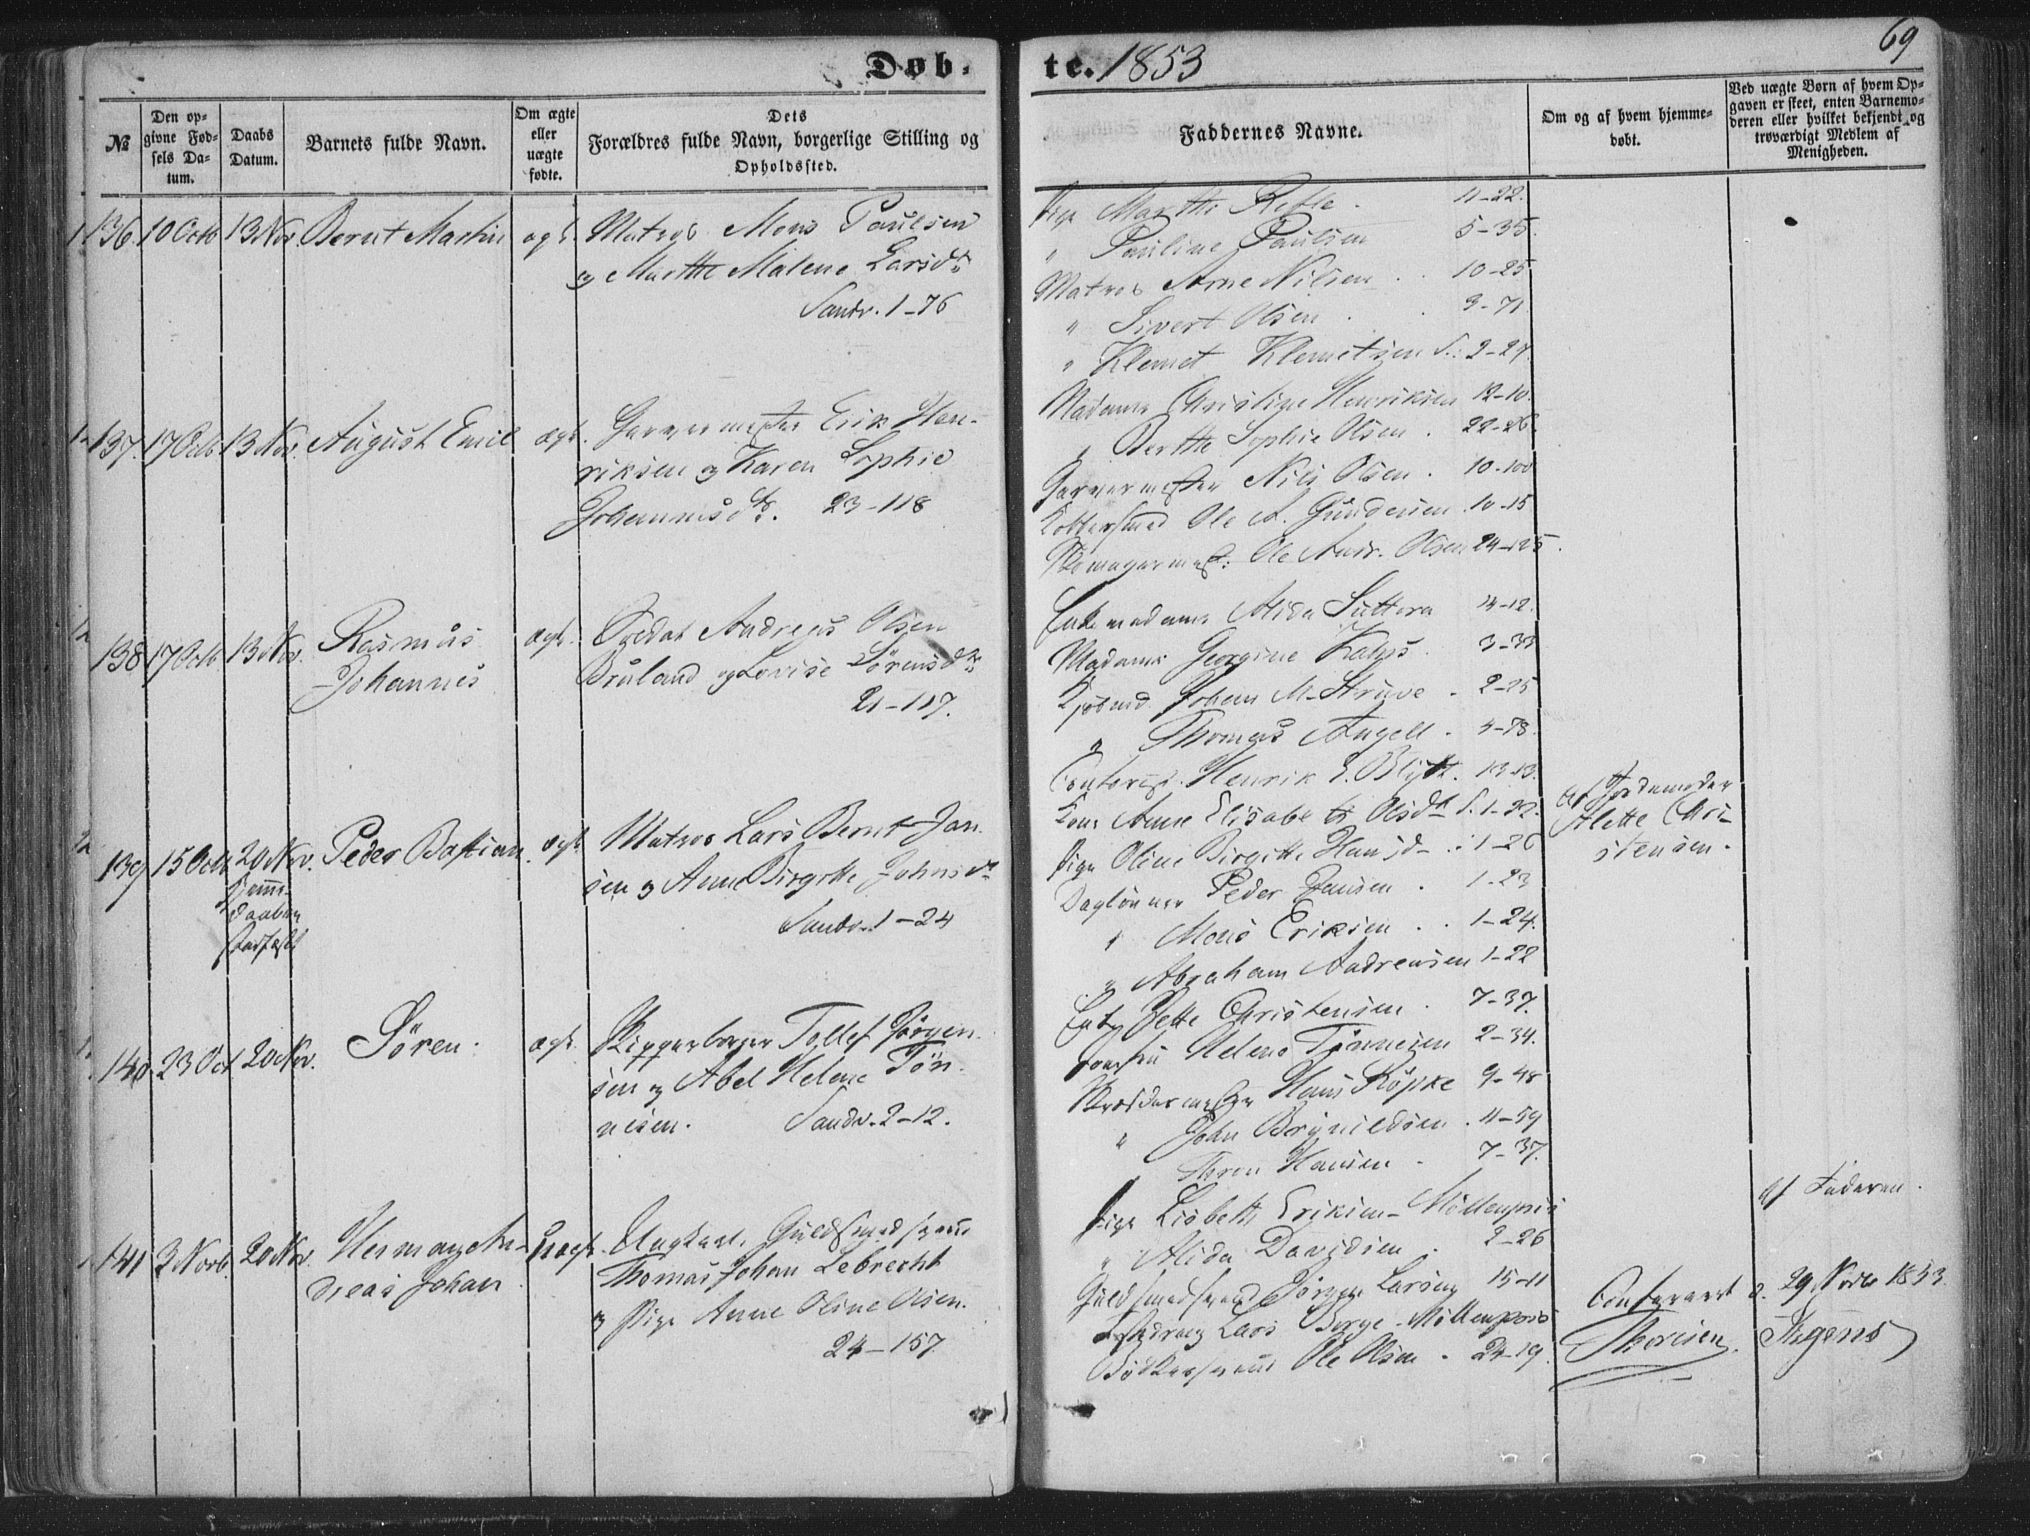 69
Døb- te. 1853
№
Den op-
givne Fød-
sels Da-
tum.
Daabs
Datum.
Barnets fulde Navn.
Om ægte
eller
uægte
fødte.
Dets
Forældres fulde Navn, borgerlige Stilling og
Opholdssted.
Faddernes Navne.
Om og af hvem hjemme-
døbt.
Ved uægte Børn af hvem Op-
gaven er skeet, enten Barnemo-
deren eller hvilket bekjendt og
troværdigt Medlem af
Menigheden.
136. 10 Octb 13 Nov Bernt Martin ægt. Matros Mons Paulsen
og Marthe Malene Larsdtr
Sandv. 1-76
Pige Marthe 11-22.
" Pauline Paulsen 5-35.
Matros Arne Nilsen 10-25
" Sivert Olsen 9-71
" Klemet Klemetsen S.: 2-24.
137. 17 Octb 13 Nov. August Emil ægt. Garvermester Erik Hen-
riksen og Karen Sophie
Johannesdtr. 23-118
Madame Christine Henriksen 12-10.
" Berthe Sophie Olsen . 22-26.
Garvermester Nils Olsen . 10-100
Kobbersmed Ole A. Gundersen . 10-15
Skomagermest: Ole Andr. Olsen 24-125.
138 17 Octb 13 Nov. Rasmus
Johannes
ægt. Andreas Olsen
Bruland og Lovise Sørensdtr
21-117.
Enkemadame Alida Suttera 14-12.
Madame Georgine 3-33
Kjøbmd. Johan M. Struve . 2-25
" Thomas Angell . 4-78.
Contorist Henrik E. Blytt. 13-13.
139 15 Octb 20 Nov. Peder Bastian ægt. Matros Lars Bernt Jan-
hjemme-
daaben
stadfæst
sen og Anne Birgitte Johnsdtr
Sandv. 1-24
Kone Anne Elisabeth Olsdtr S. 1-22.
Pige Oline Birgitte Hansd- .: 1-26
Daglønner Peder Jansen . 1-23
" Mons Eriksen . . 1-24.
" Abraham Andreasen 1-22
af Jordemoder
Alette Chri-
stensen.
140. 23 Oct 20 Nov. Søren. ægt. Skipperborger Tollef Jørgen-
sen og Abel Helene Tøn-
nesen. Sandv. 2-12.
Enke Jette Christensen . 7-37.
Jomfru Helene Tønnesen 2-34.
Skræddermester Hans Köpke 9-48
" John Brynildsen . 11-59
Thron Hansen . 7-37.
141 3 Novb. 20 Nov. Herman An-
dreas Johan
Uægt. Ungkarl, Guldsmedsvend
Thomas Johan Lebrecht
og Pige Anne Oline Olsen.
24-157
Pige Lisbeth Eriksen - Möllenpris
" Alida Davidsen . 2-26
Guldsmedsvend Jørgen Larsen 15-11
Lars Berge - Möllenpris
Bødkersvend Ole Olsen . 24-19.
Af Faderen.
Confereret d. 29 Novbr 1853.
Thorisen.